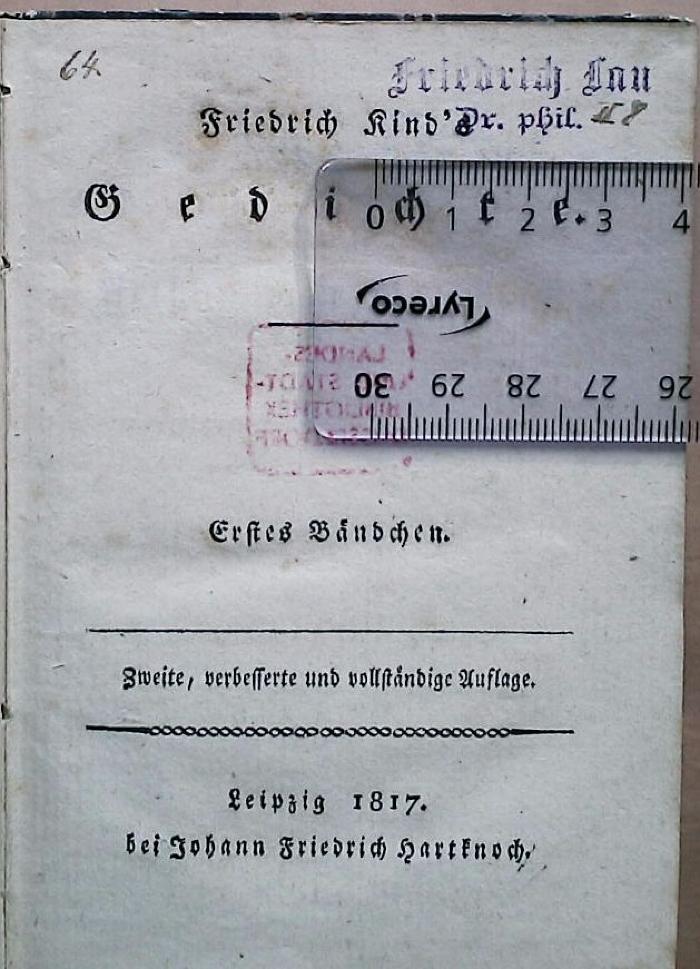 64
Friedrich Lau
Dr. phil.
Friedrich Kind's
Gedichte.
0 1 2 3 4
Lyreco
30 29 28 27 26
LANDES-
UND STADT-
BIBLIOTHEK
DÜSSELDORF
Erstes Bändchen.
Zweite, verbesserte und vollständige Auflage.
Leipzig 1817.
bei Johann Friedrich Hartknoch.